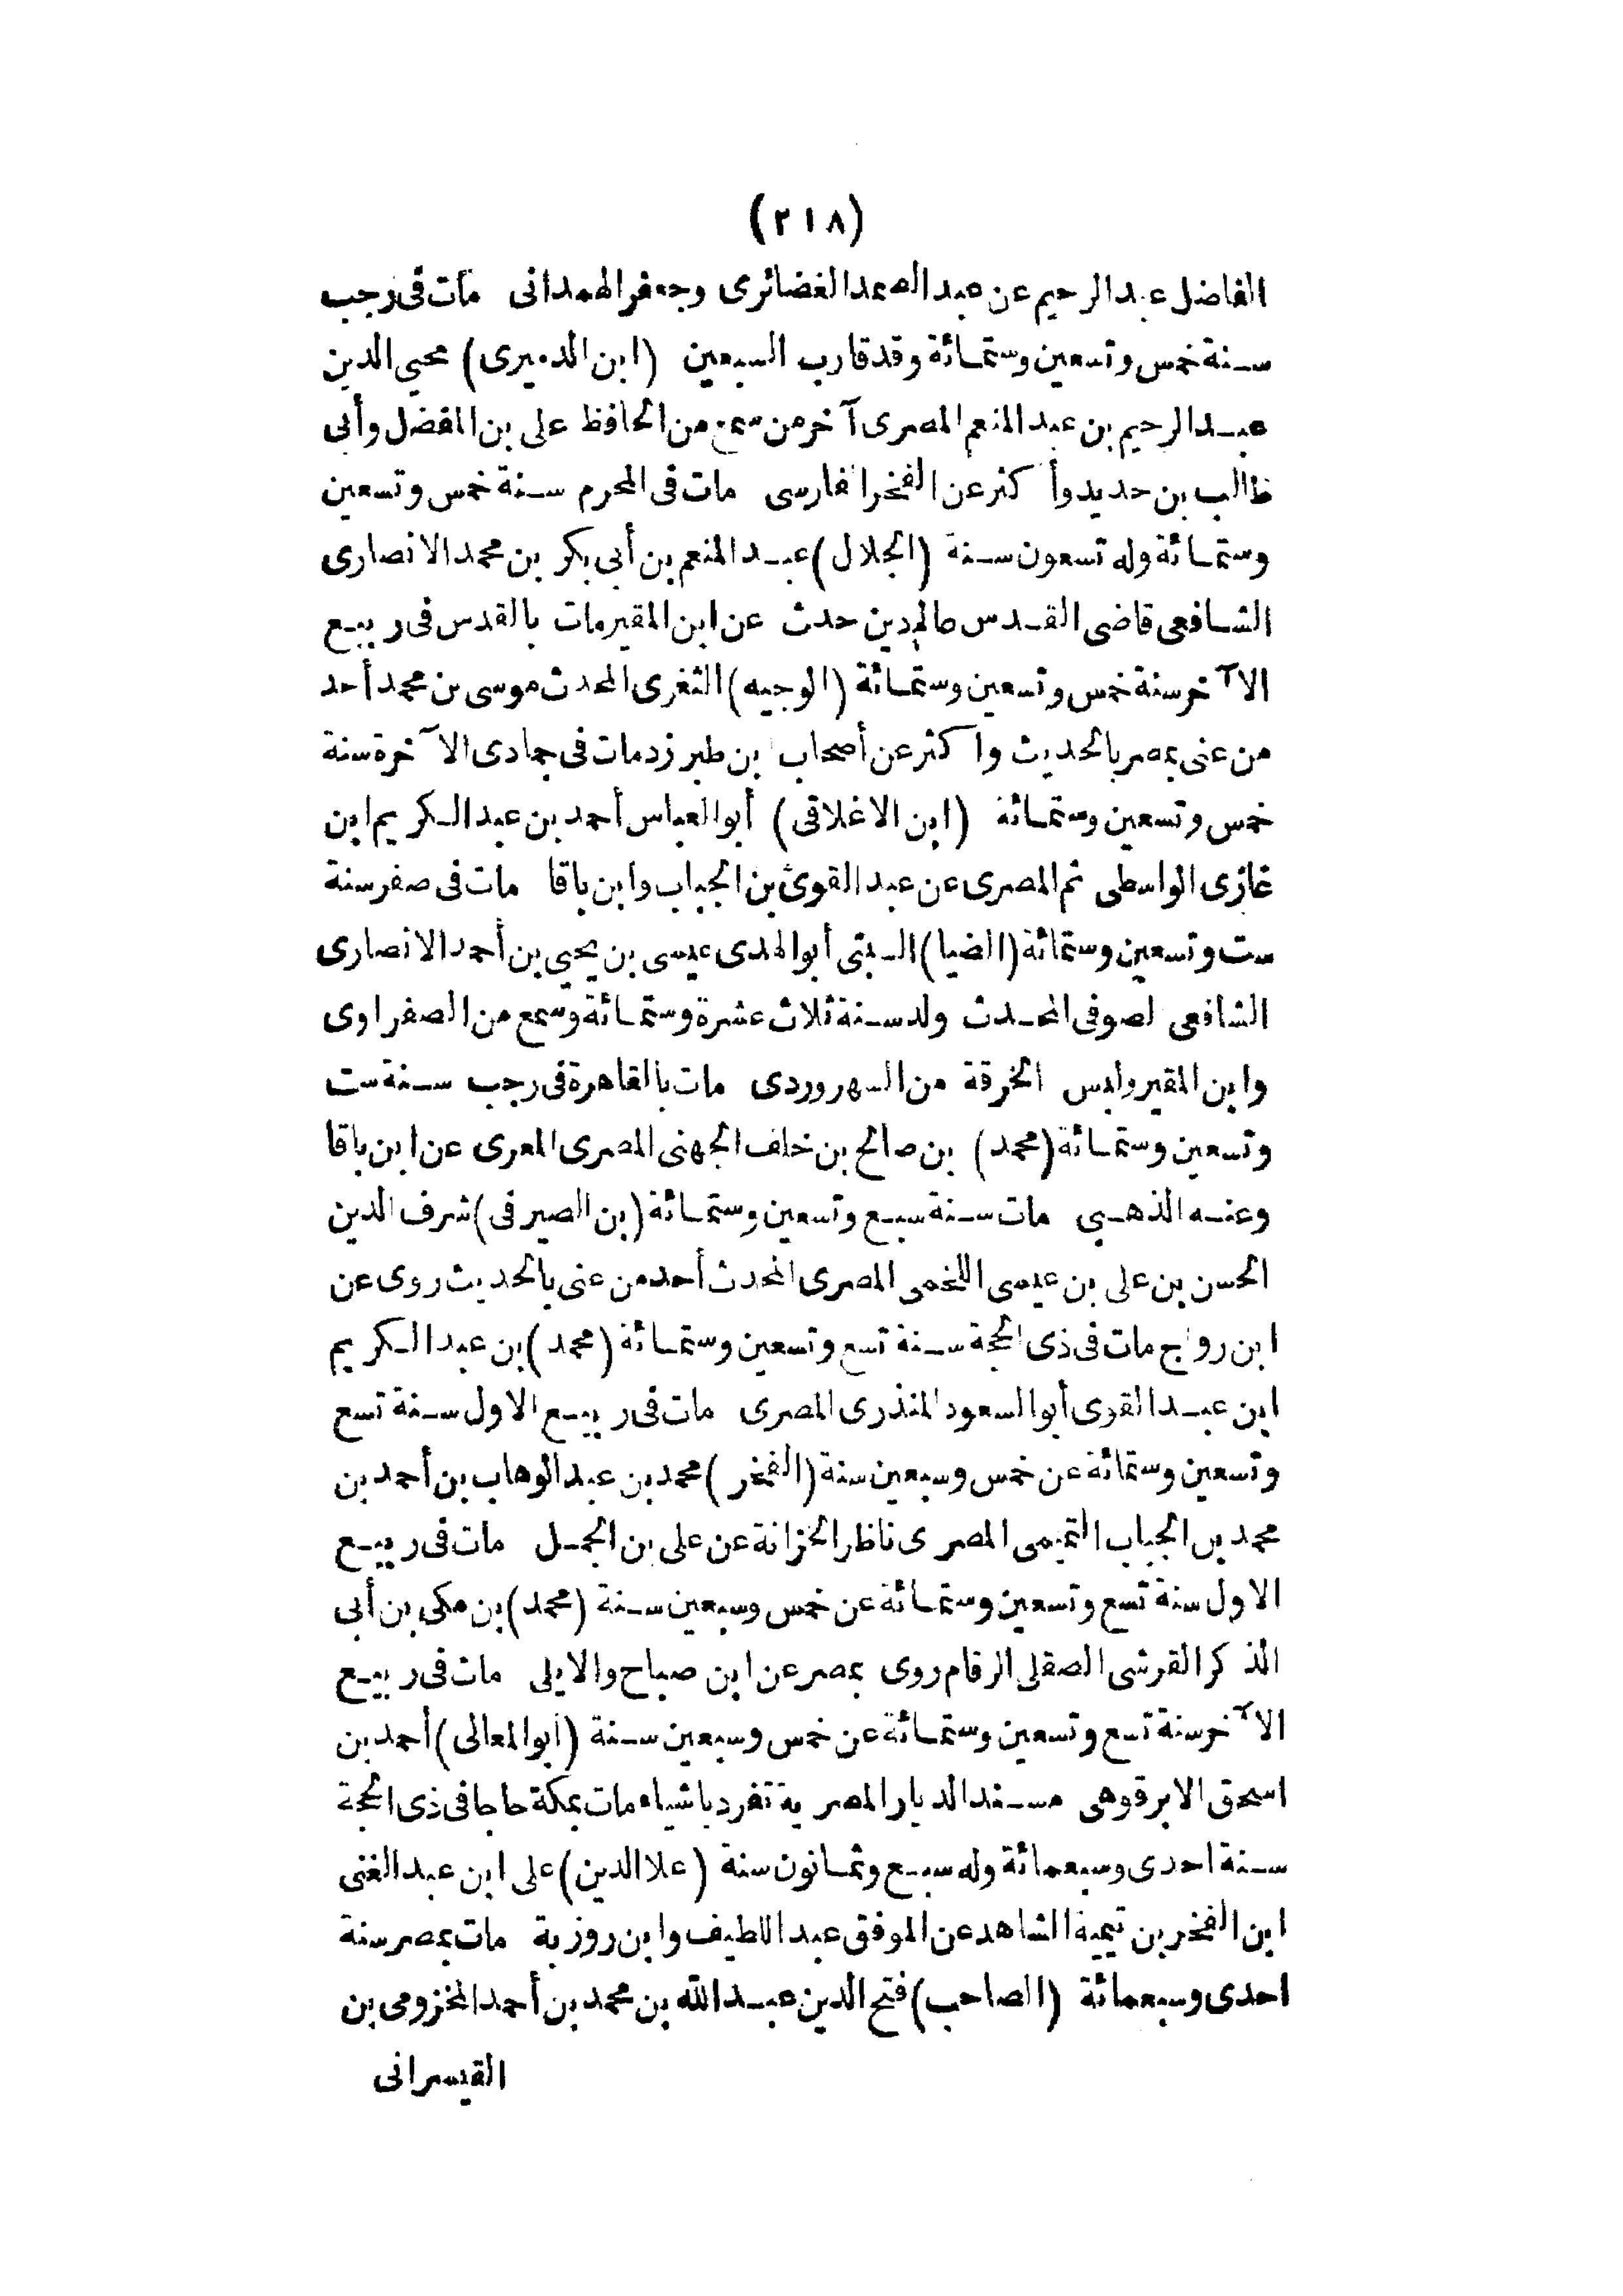 (٢١٨)
الفاضل عبدالرحيم عن عبد الصمد الغضائرى وجعفر الهمدانى مات فى رجب
سنة خمس وتسعين وستمائة وقد قارب السبعين (ابن الدميرى) محيي الدين
عبد الرحيم بن عبد المنعم المصرى آخر من سمع من الحافظ على بن المفضل وأبى
طالب بن حديد وأ كثر عن الفخر الفارسى مات فى المحرم سنة خمس وتسعين
وستمائة وله تسعون سنة (الجلال) عبد المنعم بن أبى بكر بن محمد الانصارى
الشافعى قاضى القدس حدث عن ابن المقير مات بالقدس فى ربيع
الآخر سنة خمس وتسعين وستمائة (الوجيه) الثغرى المحدث موسى بن محمد أحد
من عنى بمصر بالحديث وا كثر عن أصحاب ابن طبر زد مات فى جمادى الآخرة سنة
خمس وتسعين وستمائة (ابن الاغلاقى) أبو العباس أحمد بن عبد الكريم ابن
غازى الواسطى ثم المصرى عن عبد القوى بن الجباب وابن باقا مات فى صفر سنة
ست وتسعين وستمائة (الضيا) السبتى أبو الهدى عيسى بن يحيى بن أحمد الانصارى
الشافعى لصوفى المحدث ولد سنة ثلاث عشرة وستمائة وسمع من الصفراوى
وابن المقير ولبس الخرقة من السهروردى مات بالقاهرة فى رجب سنة ست
وتسعين وستمائة (محمد) بن صالح بن خلف الجهنى المصرى المعرى عن ابن باقا
وعنه الذهبي مات سنة سبع وتسعين وستمائة (بن الصيرفى) شرف الدين
الحسن بن على بن عيسى اللخمى المصرى المحدث أحد من عنى بالحديث روى عن
ابن رواج مات فى ذى الحجة سنة تسع وتسعين وستمائة (محمد) بن عبد الكريم
ابن عبد القوى أبو السعود المنذرى المصرى مات فى ربيع الاول سنة تسع
وتسعين وستمائة عن خمس وسبعين سنة (الفخر) محمد بن عبد الوهاب بن أحمد بن
محمد بن الجباب التميمى المصرى ناظر الخزانة عن على بن الجمل مات فى ربيع
الاول سنة تسع وتسعين وستمائة عن خمس وسبعين سنة (محمد) بن مكى بن أبى
الذ كر القرشى الصقلى الرقام روى بمصر عن ابن صباح والايلى مات فى ربيع
الآخر سنة تسع وتسعين وستمائة عن خمس وسبعين سنة (أبو المعالى) أحمد بن
اسحق الابرقوهى مسند الديار المصرية تفرد باشياء مات بمكة حاجا فى ذى الحجة
سنة احدى وسبعمائة وله سبع وثمانون سنة (علا الدين) على ابن عبد الغنى
ابن الفخر بن تيمية الشاهد عن الموفق عبد اللطيف وابن روزبة مات بمصر سنة
احدى وسبعمائة (الصاحب) فتح الدين عبد الله بن محمد بن أحمد المخزومى بن
القيسرانى